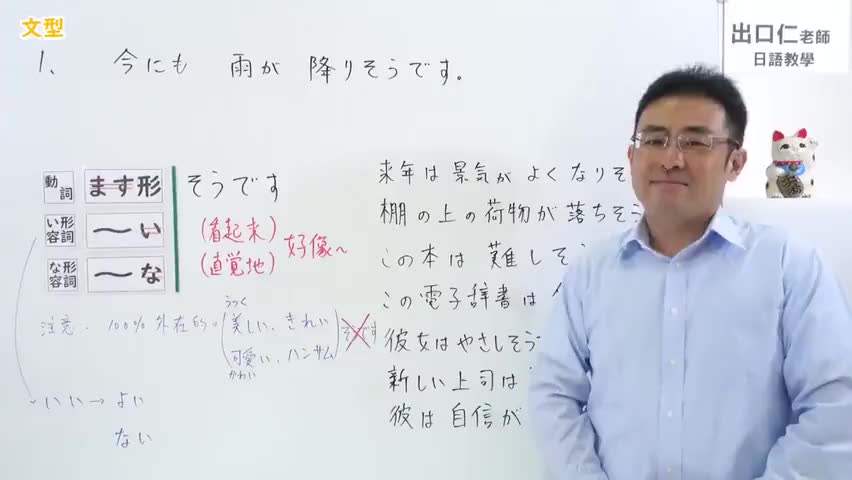 文型
出口仁老師
日語教學
1、 今にも 雨が 降りそうです。
動詞 ます形 そうです
い形容詞 〜い (看起來) 好像~
な形容詞 〜な (直覚地)
注意. 100%外在的。(美しい、きれい そうです
うつく
可愛い、ハンサム)
かわい
いい→よい
ない
来年は景気が よくなりそ
棚の上の荷物が 落ちそう
この本は 難しそう
この電子辞書は
彼女はやさしそう
新しい上司は
彼は 自信が